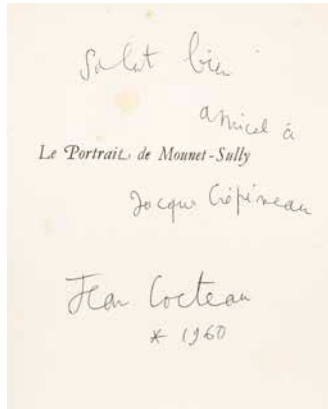 Salut bien
amical à
Le Portrait de Mounet-Sully
Jacques Crépineau
Jean Cocteau
* 1960